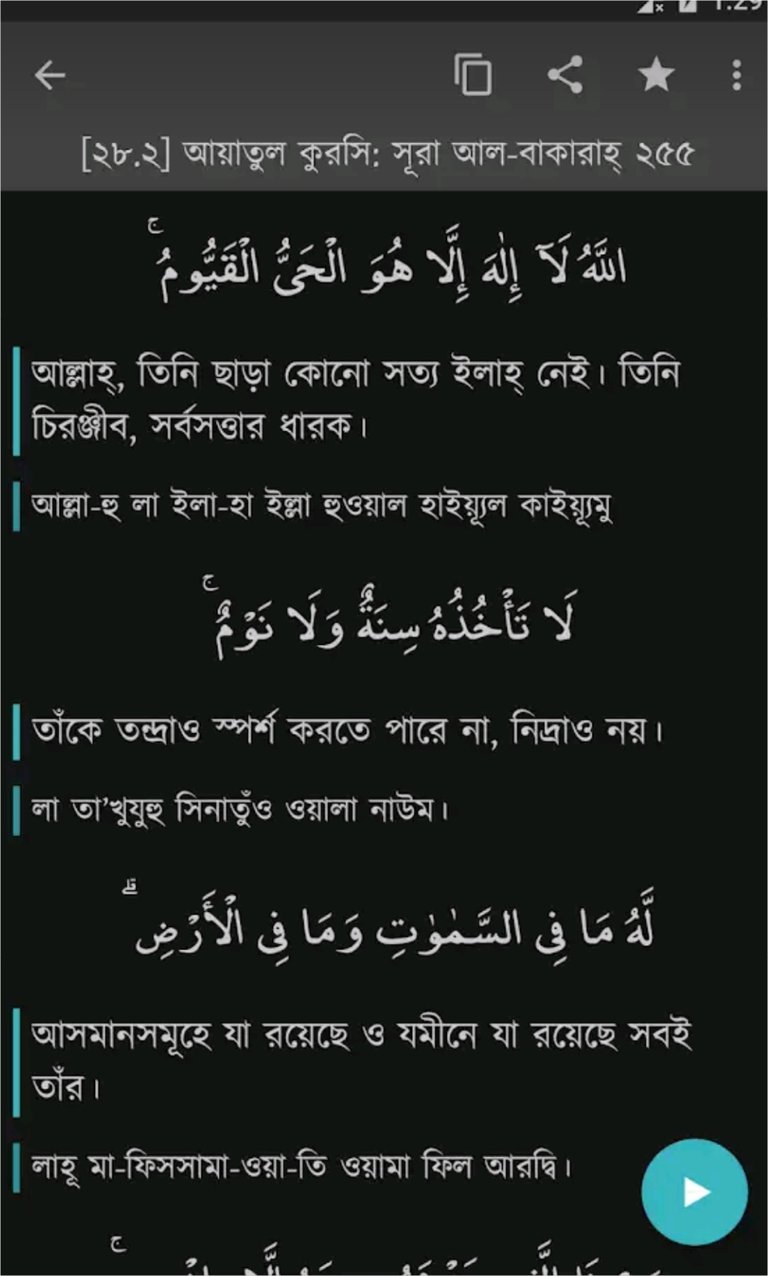 1:29
[২৮.২] আয়াতুল কুরসি: সূরা আল-বাকারাহ্ ২৫৫
اللَّهُ لَآ إِلٰهَ إِلَّا هُوَ الْحَىُّ الْقَيُّومُ ۚ
আল্লাহ্, তিনি ছাড়া কোনো সত্য ইলাহ্ নেই। তিনি
চিরঞ্জীব, সর্বসত্তার ধারক।
আল্লা-হু লা ইলা-হা ইল্লা হুওয়াল হাইয়্যূল কাইয়্যূমু
لَا تَأْخُذُهُۥ سِنَةٌ وَلَا نَوْمٌ ۚ
তাঁকে তন্দ্রাও স্পর্শ করতে পারে না, নিদ্রাও নয়।
লা তা’খুযুহু সিনাতুঁও ওয়ালা নাউম।
لَّهُۥ مَا فِى السَّمٰوٰتِ وَمَا فِى الْأَرْضِ ۗ
আসমানসমূহে যা রয়েছে ও যমীনে যা রয়েছে সবই
তাঁর।
লাহূ মা-ফিসসামা-ওয়া-তি ওয়ামা ফিল আরদ্বি।